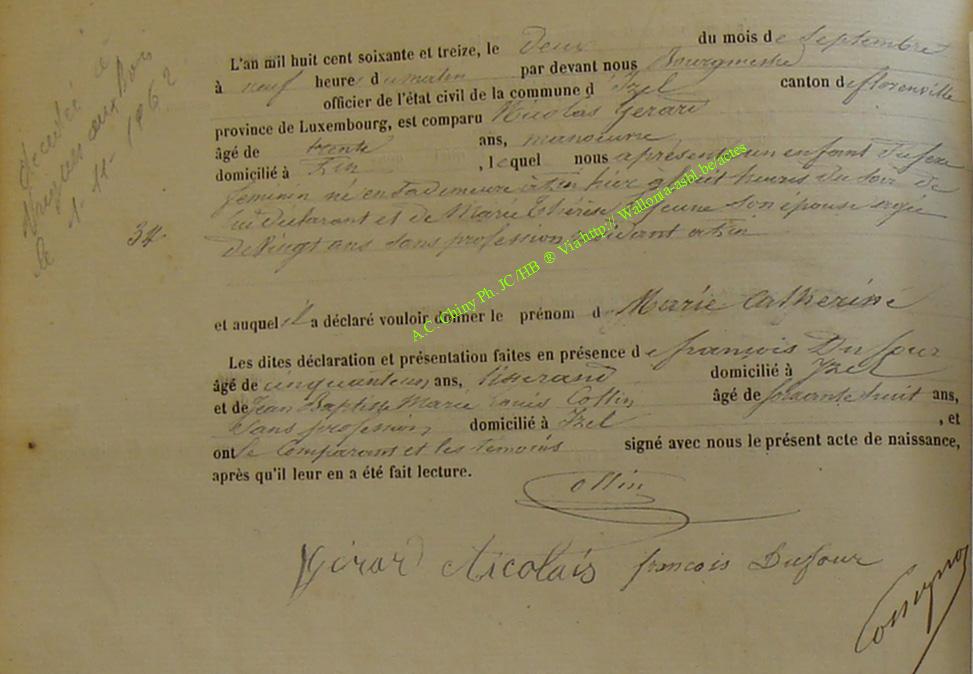 L'an mil huit cent soixante et treize, le deux du mois de Septembre
à neuf heures du matin par devant nous Bourgmestre
officier de l'état civil de la commune d'Izel canton de florenville
province de Luxembourg, est comparu Nicolas Gerard
âgé de trente ans, manoeuvre
domicilié à , lequel nous a présenté un enfant du sexe
feminin né en sa demeure à hier à huit heures du soir de
lui déclarant et de Marie Thérèse jeune son épouse agée
de Vingt ans sans profession résidant a
34
et auquel il a déclaré vouloir donner le prénom de Marie Catherine
Les dites déclaration et présentation faites en présence de françois Dufour
âgé de cinquante un ans, tisserand domicilié à Yzel
et de Jean Baptiste Marie Louis Collin âgé de soixante huit ans,
sans profession domicilié à Yzel , et
ont le Comparant et les temoins signé avec nous le présent acte de naissance,
après qu'il leur en a été fait lecture.
Collin
Gérard Nicolais françois Dufour
décédé
aux bois
le 1-11-1962
A.C. Chiny Ph. JC/HB ® Via http://Wallonia-asbl.be/actes